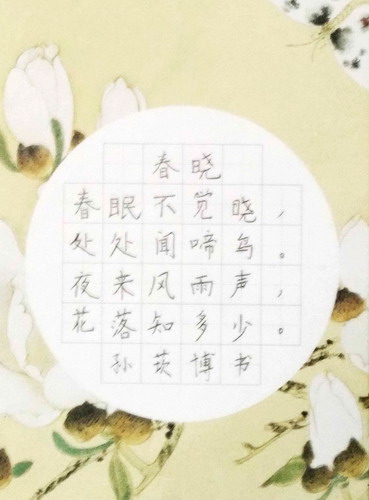 春晓
春眠不觉晓，
处处闻啼鸟。
夜来风雨声，
花落知多少。
孙茨博书